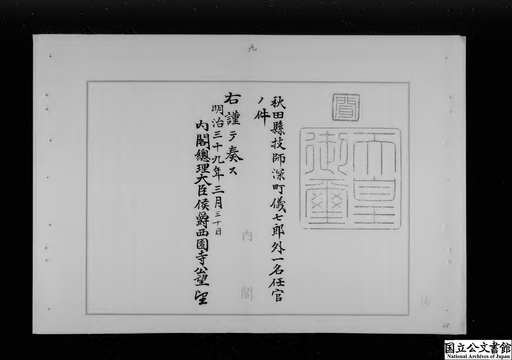 九
聞
天皇御璽
秋田縣技師深町儀七郎外一名任官
ノ件
右謹テ奏ス
明治三十九年三月三十日
内閣總理大臣侯爵西園寺公望
内閣
国立公文書館
National Archives of Japan